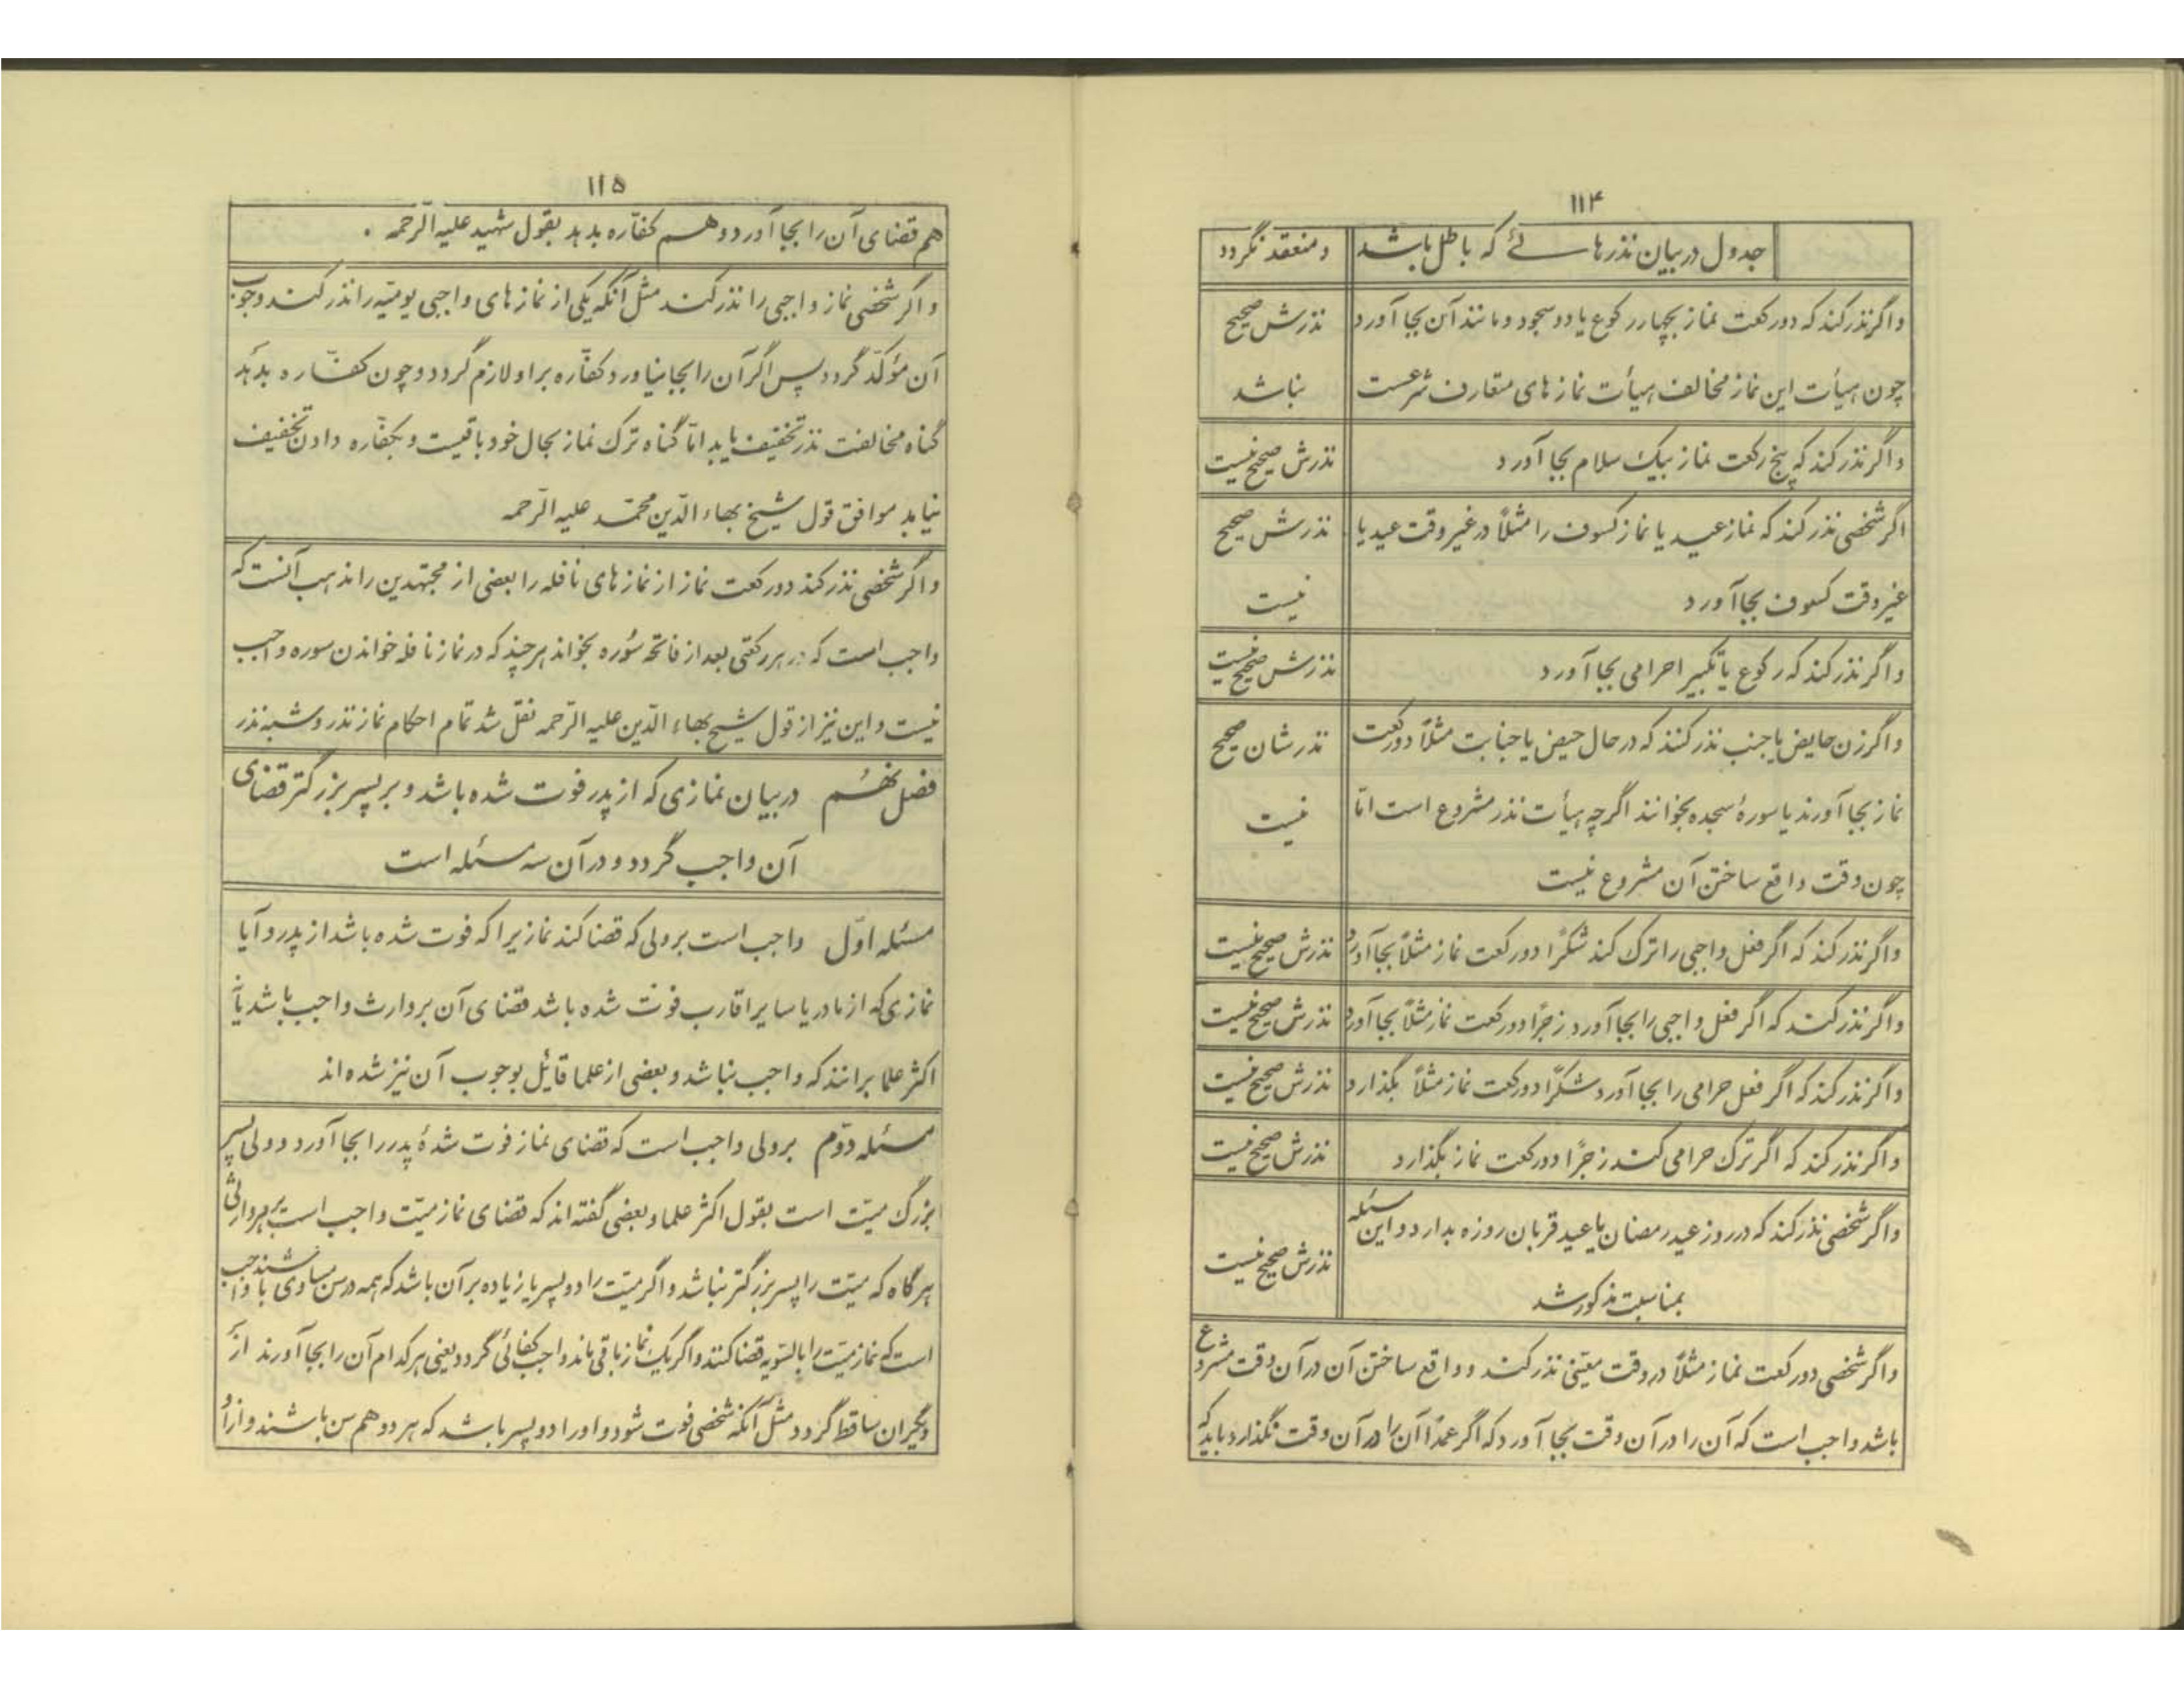 ۱۱۴
جدول در بیان نذرهائے که باطل باشد و منعقد نگردد
و اگر نذر کند که دو رکعت نماز بچهار رکوع یا دو سجود و مانند آن بجا آورد نذرش صحیح
چون هیأت این نماز مخالف هیأت نمازهای متعارف شرعست نباشد
و اگر نذر کند که پنج رکعت نماز بیک سلام بجا آورد نذرش صحیح نیست
اگر شخصی نذر کند که نماز عید یا نماز کسوف را مثلاً در غیر وقت عید یا نذرش صحیح
غیر وقت کسوف بجا آورد نیست
و اگر نذر کند که رکوع یا تکبیر احرامی بجا آورد نذرش صحیح نیست
و اگر زن حایض یا جنب نذر کنند که در حال حیض یا جنابت مثلاً دو رکعت نذرشان صحیح
نماز بجا آورند یا سورهٔ سجده بخوانند اگر چه هیأت نذر مشروع است امّا نیست
چون وقت واقع ساختن آن مشروع نیست
و اگر نذر کند که اگر فعل واجبی را ترک کند شکرًا دو رکعت نماز مثلاً بجا آورد نذرش صحیح نیست
و اگر نذر کند که اگر فعل واجبی را بجا آورد زجرًا دو رکعت نماز مثلاً بجا آورد نذرش صحیح نیست
و اگر نذر کند که اگر فعل حرامی را بجا آورد شکرًا دو رکعت نماز مثلاً بگذارد نذرش صحیح نیست
و اگر نذر کند که اگر ترک حرامی کند زجرًا دو رکعت نماز بگذارد نذرش صحیح نیست
و اگر شخصی نذر کند که در روز عید رمضان یا عید قربان روزه بدارد و این مسئله
بمناسبت مذکور شد نذرش صحیح نیست
و اگر شخصی دو رکعت نماز مثلاً در وقت معیّنی نذر کند و واقع ساختن آن در آن وقت مشروع
باشد واجب است که آن را در آن وقت بجا آورد که اگر عمدًا آن را در آن وقت نگذارد باید که
۱۱۵
هم قضای آن را بجا آورد و هم کفّاره بدهد بقول شهید علیه الرّحمه .
و اگر شخصی نماز واجبی را نذر کند مثل آنکه یکی از نمازهای واجبی یومیّه را نذر کند وجوب
آن مؤکّد گردد پس اگر آن را بجا نیاورد کفّاره بر او لازم گردد و چون کفّاره بدهد
گناه مخالفت نذر تخفیف یابد امّا گناه ترک نماز بحال خود باقیست و بکفّاره دادن تخفیف
نیابد موافق قول شیخ بهاء الدّین محمّد علیه الرّحمه
و اگر شخصی نذر کند دو رکعت نماز از نمازهای نافله را بعضی از مجتهدین را مذهب آنست که
واجب است که در هر رکعتی بعد از فاتحه سُوره بخواند هر چند که در نماز نافله خواندن سوره واجب
نیست و این نیز از قول شیخ بهاء الدّین علیه الرّحمه نقل شد تمام احکام نماز نذر و شبه نذر
فصل نهُم در بیان نمازی که از پدر فوت شده باشد و بر پسر بزرگتر قضای
آن واجب گردد و در آن سه مسئله است
مسئله اوّل واجب است بر ولی که قضا کند نمازیرا که فوت شده باشد از پدر و آیا
نمازی که از مادر یا سایر اقارب فوت شده باشد قضای آن بر وارث واجب باشد یا نه
اکثر علما برانند که واجب نباشد و بعضی از علما قایل بوجوب آن نیز شده اند
مسئله دوّم بر ولی واجب است که قضای نماز فوت شدهٔ پدر را بجا آورد و ولی پسر
بزرگ میّت است بقول اکثر علما و بعضی گفته اند که قضای نماز میّت واجب است بر هر وارثی
هر گاه که میّت را پسر بزرگتر نباشد و اگر میّت را دو پسر یا زیاده بر آن باشد که همه در سن مساوی باشند واجب
است که نماز میّت را بالسّویه قضا کنند و اگر یک نماز باقی ماند واجب کفائی گردد یعنی هر کدام آن را بجا آورند از
دیگران ساقط گردد مثل آنکه شخصی فوت شود و او را دو پسر باشد که هر دو هم سن باشند و از او